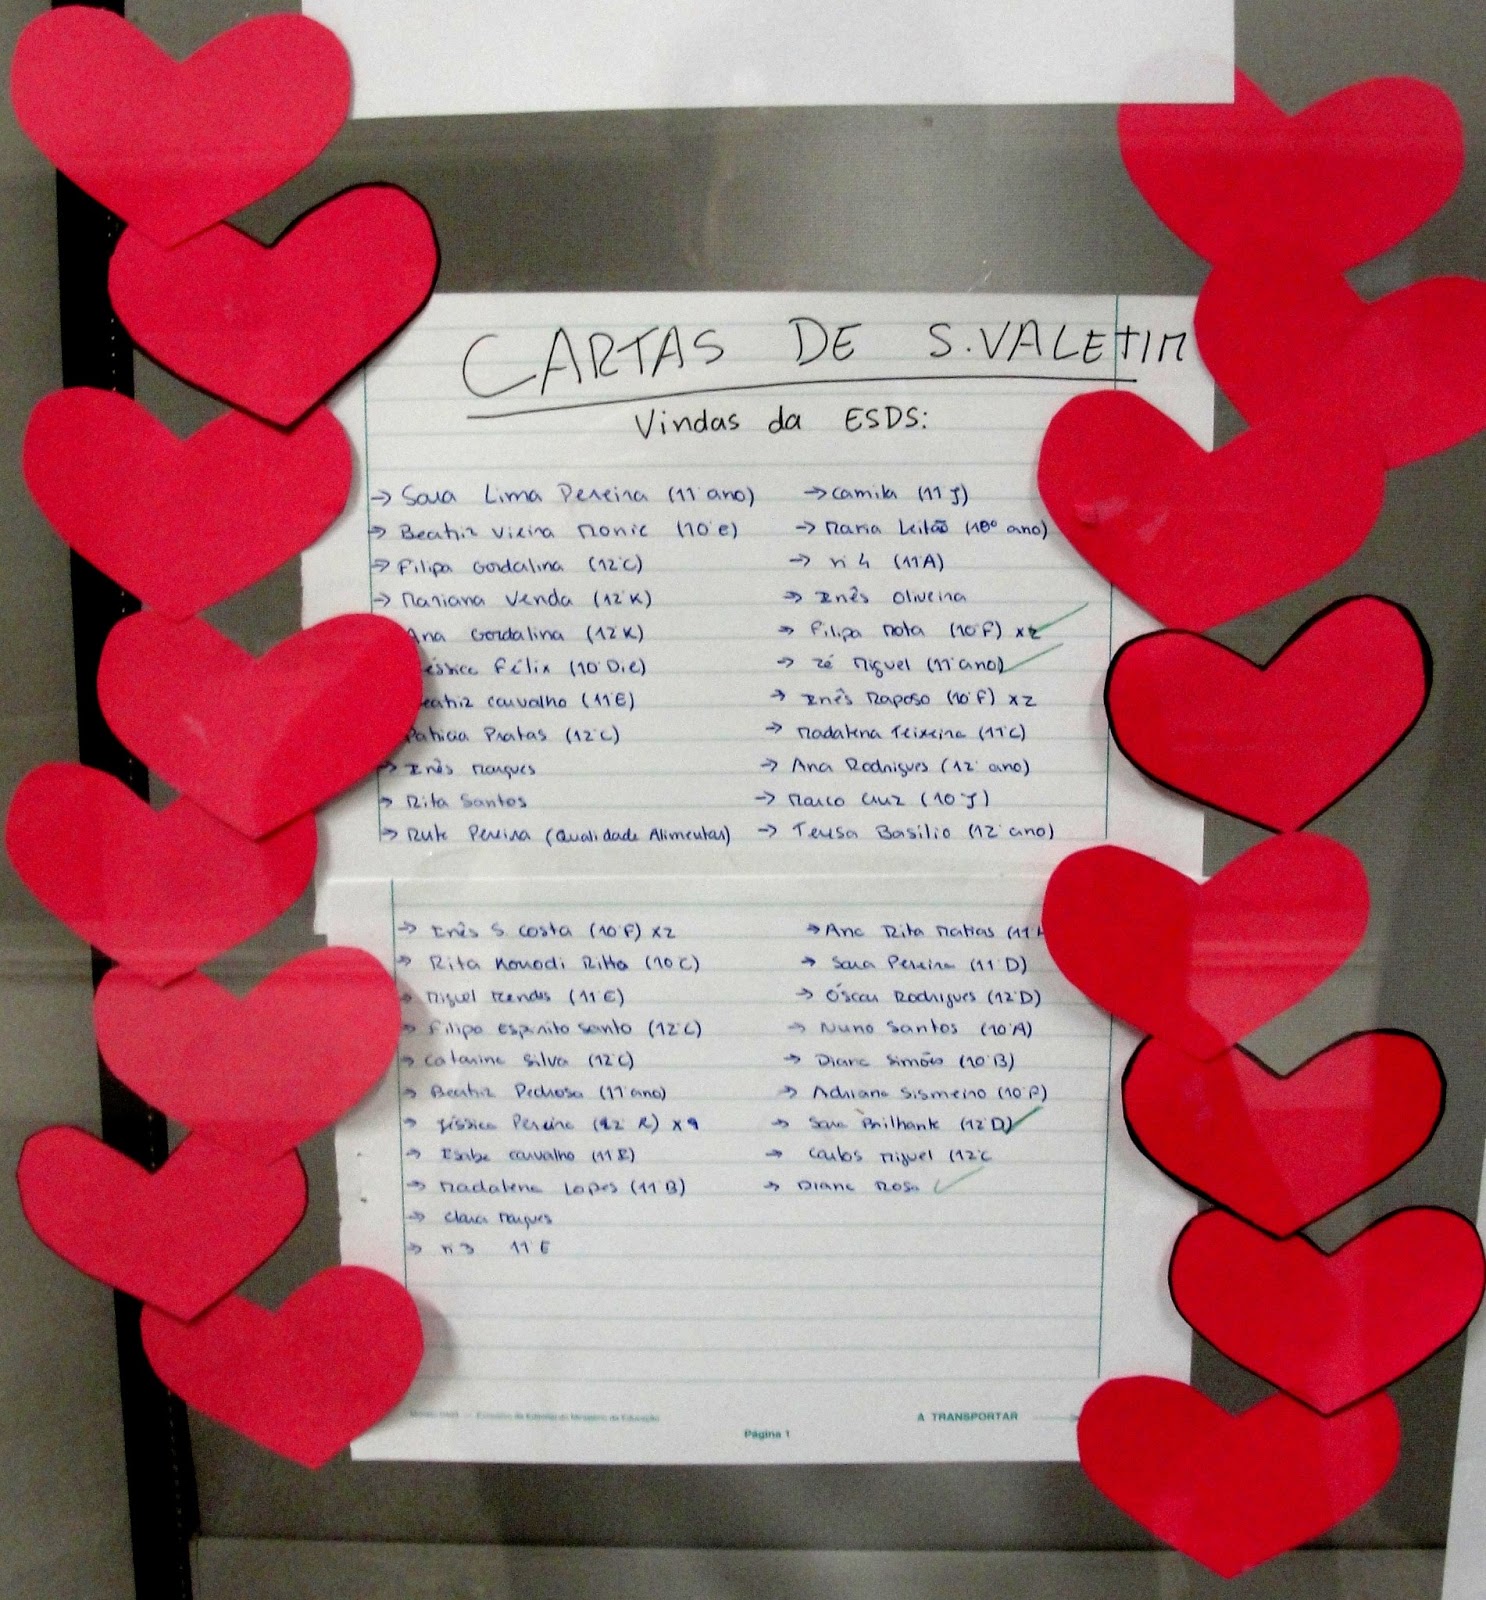 CARTAS DE S.VALETIM
Vindas da ESDS:
→ Sara Lima Pereira (11º ano)
→ Beatriz Vieira Monic (10ºe)
→ Filipa Gordalina (12ºC)
→ Mariana Venda (12ºK)
Ana Gordalina (12ºK)
éssica Félix (10ºDie)
eatriz Carvalho (11ºE)
Patricia Pratas (12ºC)
→ Inês Marques
→ Rita Santos
→ Rute Pereira (Qualidade Alimentar)
→ Camila (11ºJ)
→ Maria Leitão (10º ano)
→ nº4 (11ºA)
→ Inês Oliveira
→ Filipa Mota (10ºF) x2
→ Zé Miguel (11ºano)
→ Inês Raposo (10ºF) x2
→ Madalena Teixeira (11ºC)
→ Ana Rodrigues (12º ano)
→ Marco Cruz (10ºJ)
→ Teresa Basílio (12º ano)
→ Inês S. Costa (10ºF) x2
→ Rita (10ºC)
→ Miguel Mendes (11ºE)
→ Filipa Espirito Santo (12ºC)
→ Catarina Silva (12ºC)
→ Beatriz Pedrosa (11ºano)
→ Jéssica Pereira (12ºR) x9
→ Isabe Carvalho (11ºE)
→ Madalena Lopes (11ºB)
→ Clara Marques
→ nº3 11ºE
→ Ana Rita Matias (11º
→ Sara Pereira (11ºD)
→ Óscar Rodrigues (12ºD)
→ Nuno Santos (10ºA)
→ Diana Simões (10ºB)
→ Adriana Sismeiro (10ºP)
→ Sara Brilhante (12ºD)
→ Carlos Miguel (12ºC
→ Diana Rosa
A TRANSPORTAR
Página 1